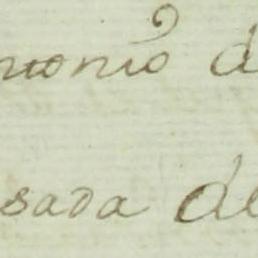 ntonio d
sada de